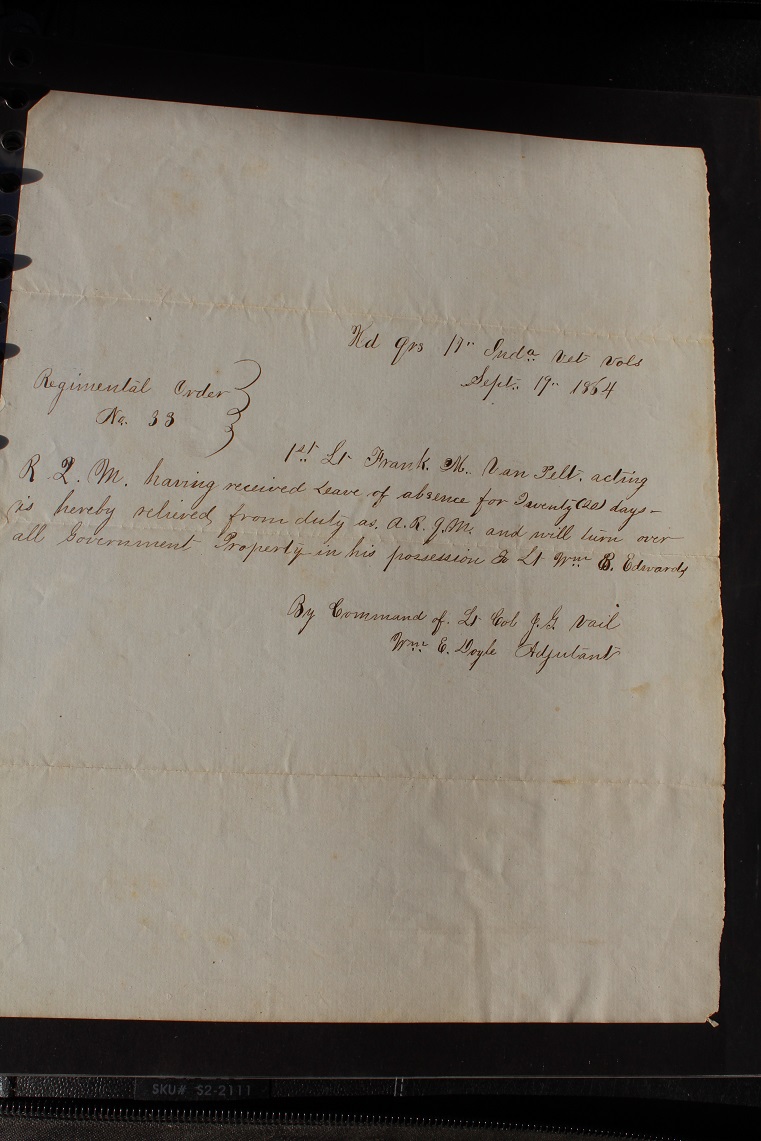 Hd qrs 17" Inda Vet Vols
Sept. 19" 1864
Regimental Order
No. 33
1st Lt Frank. M. Van Pelt. acting
R. Q. M. having received Leave of absence for Twenty (20) days-
is hereby relieved from duty as. A. R. Q. M. and will turn over
all Government Property in his possession to Lt Wm B. Edwards
By Command of. Lt Col J. G. Vail
Wm E. Doyle Adjutant
SKU# S2-2111